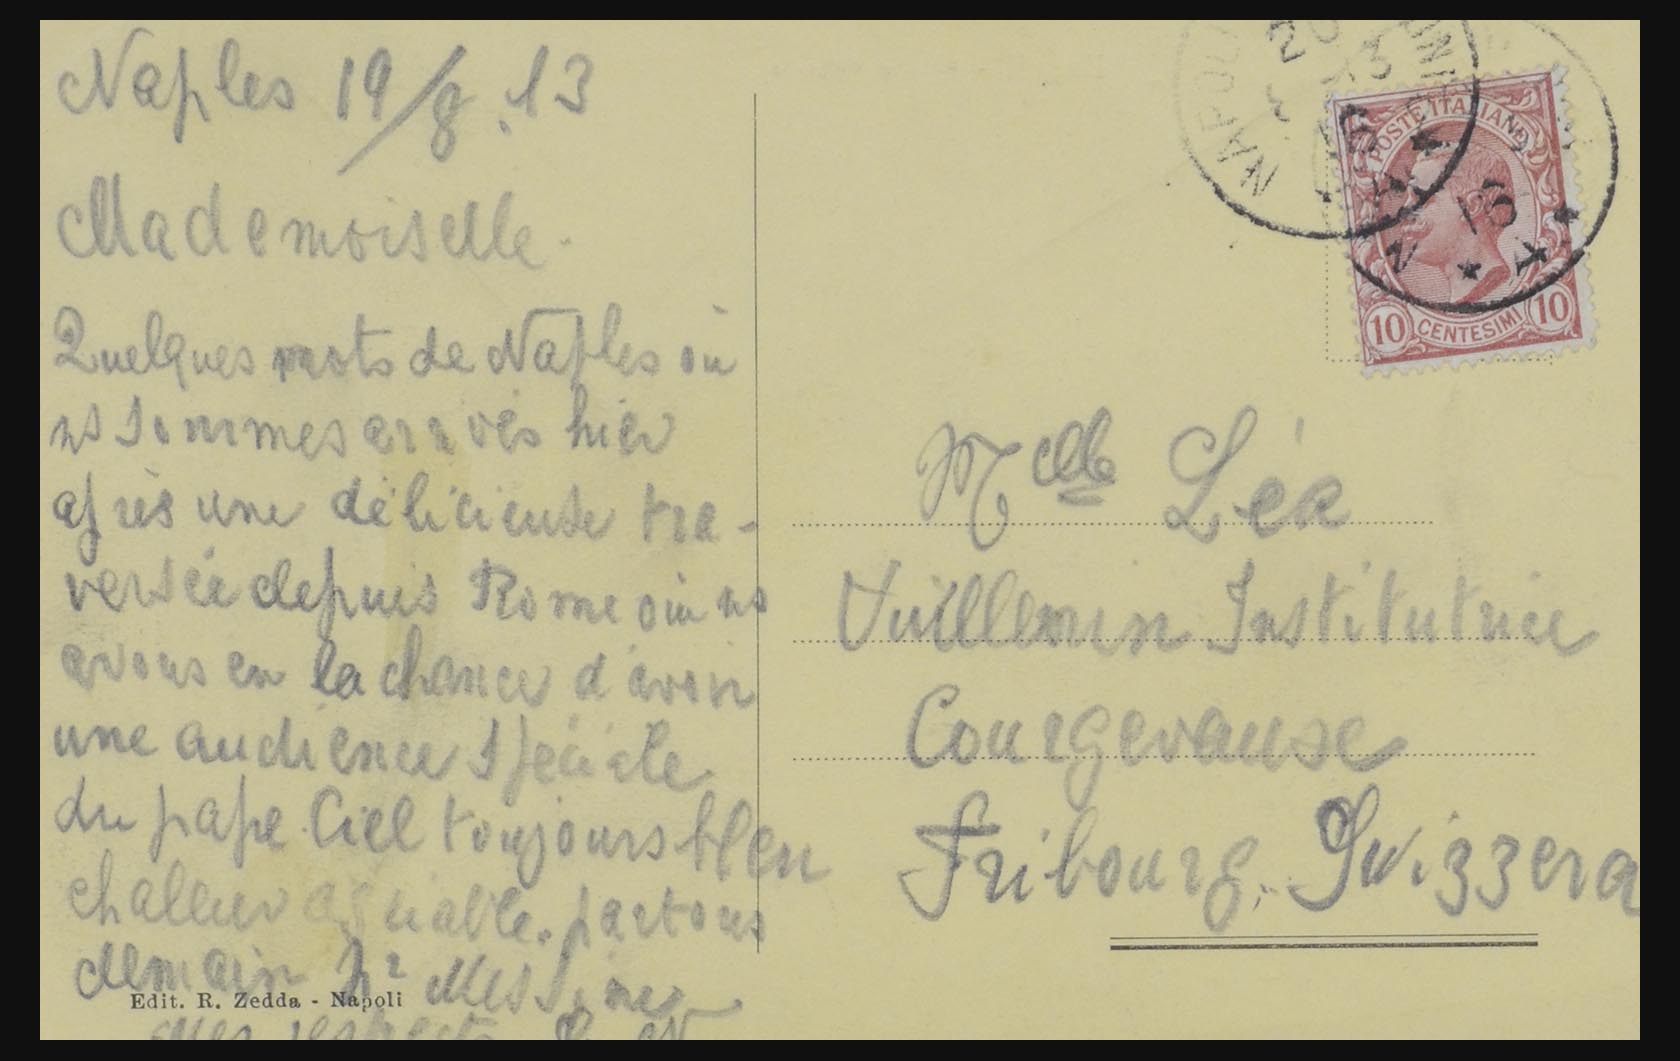 Naples 19/8.13
Mademoiselle.
Quelques mots de Naples où
ns sommes arrivés hier
après une délicieuse tra-
versée depuis Rome où ns
avons eu la chance d'avoir
une audience spéciale
du pape. Ciel toujours bleu
chaleur agréable. partons
demain pr Messine
Mes respects
Edit. R. Zedda - Napoli
NAPOLI
POSTE ITALIANE
10 CENTESIMI 10
Melle Léa
Vuillemin Institutrice
Courgevause
Fribourg. Svizzera